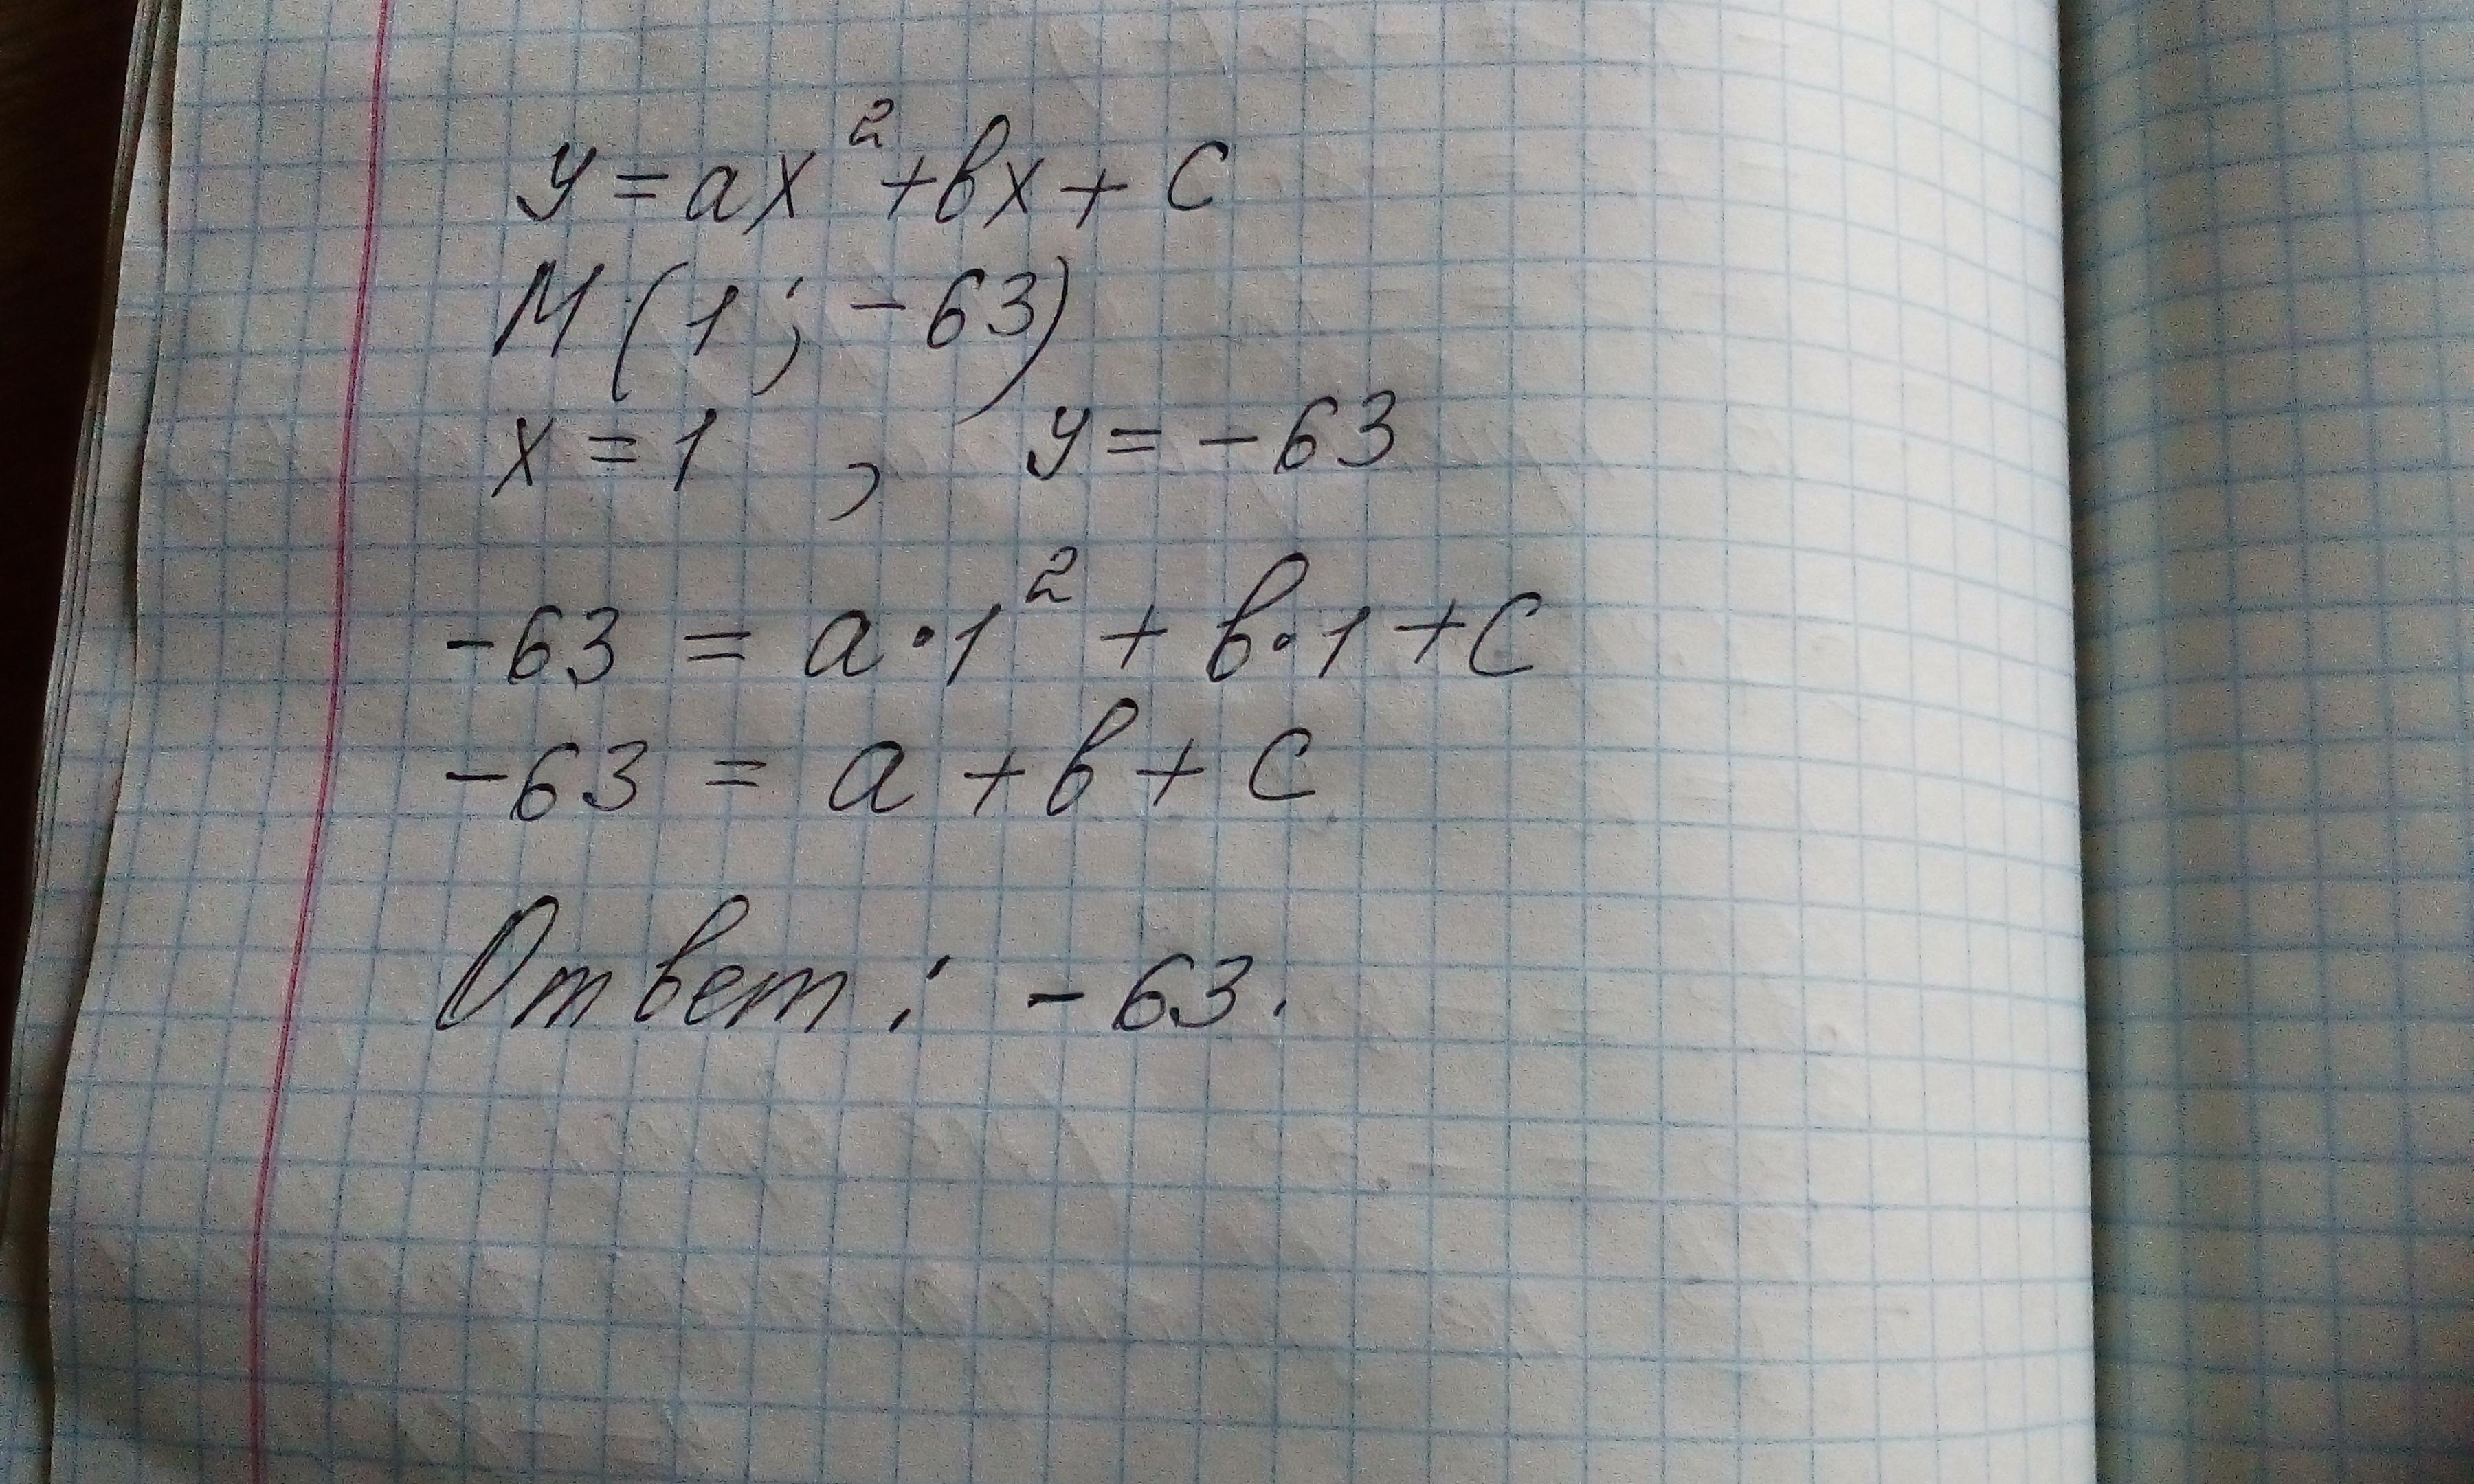 y = ax² + bx + c
M (1; -63)
x = 1 , y = -63
-63 = a·1² + b·1 + c
-63 = a + b + c
Ответ: -63.